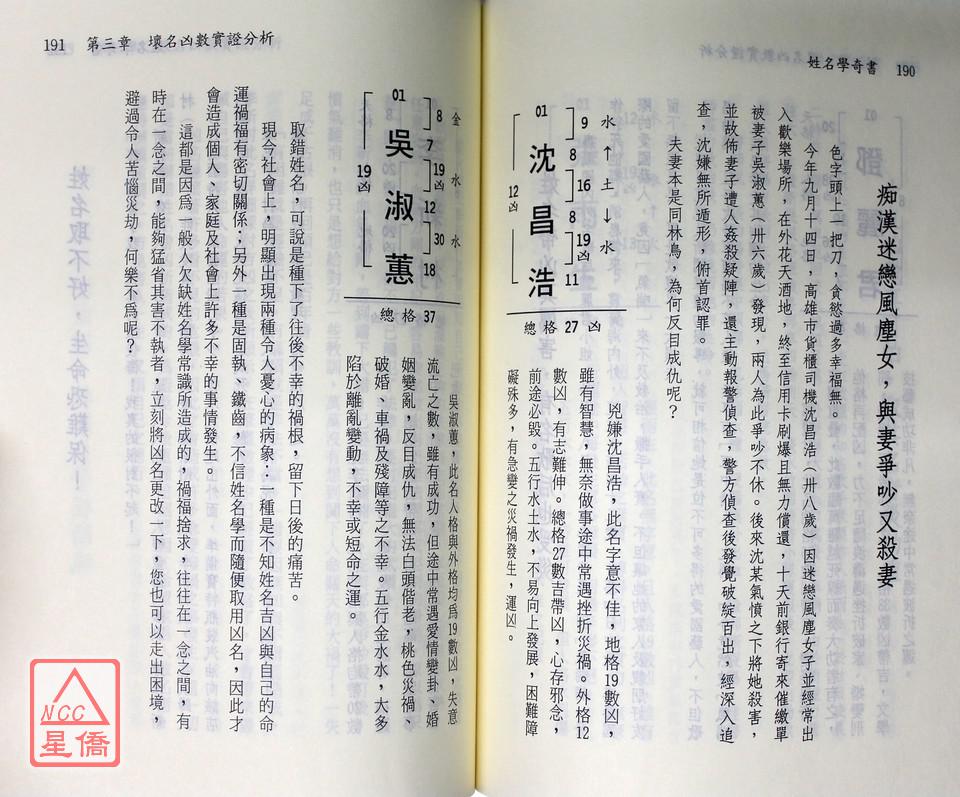 姓名學奇書 190
痴漢迷戀風塵女，與妻爭吵又殺妻
色字頭上一把刀，貪慾過多幸福無。
今年九月十四日，高雄市貨櫃司機沈昌浩（卅八歲）因迷戀風塵女子並經常出
入歡樂場所，在外花天酒地，終至信用卡刷爆且無力償還，十天前銀行寄來催繳單
被妻子吳淑蕙（卅六歲）發現，兩人為此爭吵不休。後來沈某氣憤之下將她殺害，
並故佈妻子遭人姦殺疑陣，還主動報警偵查，警方偵查後發覺破綻百出，經深入追
查，沈嫌無所遁形，俯首認罪。
夫妻本是同林鳥，為何反目成仇呢？
水↑土↓水
9 16 19凶
01 8 8 11
沈昌浩
12凶
總格27凶
兇嫌沈昌浩，此名字意不佳，地格19數凶，
雖有智慧，無奈做事途中常遇挫折災禍。外格12
數凶，有志難伸。總格27數吉帶凶，心存邪念，
前途必毀。五行水土水，不易向上發展，困難障
礙殊多，有急變之災禍發生，運凶。
191 第三章 壞名凶數實證分析
金 水 水
8 19凶 30
01 7 12 18
吳淑蕙
19凶
總格37
吳淑蕙，此名人格與外格均為19數凶，失意
流亡之數，雖有成功，但途中常遇愛情變卦、婚
姻變亂，反目成仇，無法白頭偕老，桃色災禍、
破婚、車禍及殘障等之不幸。五行金水水，大多
陷於離亂變動，不幸或短命之運。
取錯姓名，可說是種下了往後不幸的禍根，留下日後的痛苦。
現今社會上，明顯出現兩種令人憂心的病象：一種是不知姓名吉凶與自己的命
運禍福有密切關係；另外一種是固執、鐵齒，不信姓名學而隨便取用凶名，因此才
會造成個人、家庭及社會上許多不幸的事情發生。
這都是因為一般人欠缺姓名學常識所造成的，禍福捨求，往往在一念之間，有
時在一念之間，能夠猛省其害不執者，立刻將凶名更改一下，您也可以走出困境，
避過令人苦惱災劫，何樂不為呢？
NCC
星僑